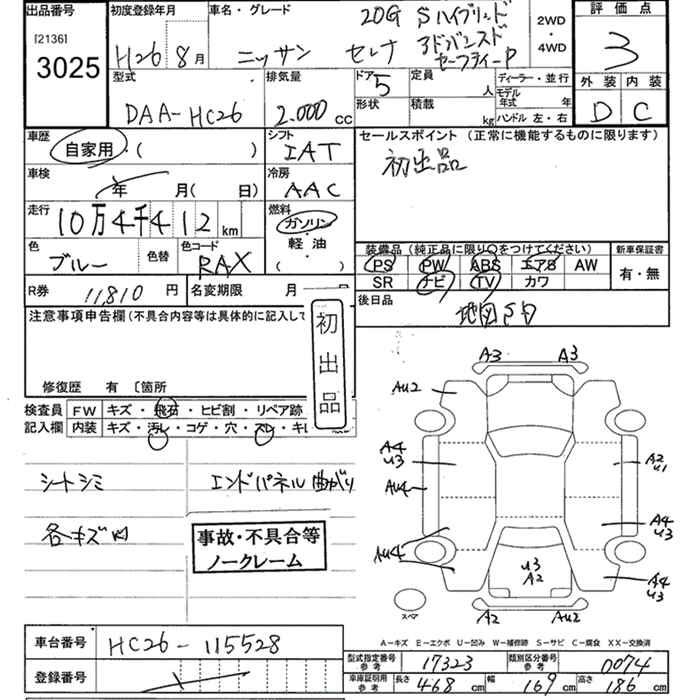 出品番号 初度登録年月 車名・グレード 20G Sハイブリッド 2WD・4WD 評価点
[2136] 3025 H26 8月 ニッサン セレナ アドバンスドセーフティーP 3
型式 排気量 ドア 5 定員 人 ディーラー・並行 外装 内装
DAA-HC26 2.000 cc 形状 積載 kg モデル年式 年 D C
ハンドル 左・右
車歴 自家用・( ) シフト IAT セールスポイント (正常に機能するものに限ります)
車検 年 月(日) 冷房 AAC 初出品
走行 10万4千412km 燃料 ガソリン・軽油( )
色 ブルー 色替 色コード RAX
装備品 (純正品に限り○をつけてください) 新車保証書
PS PW ABS エアB AW 有・無
SR ナビ TV カワ
R券 11,810円 名変期限 月 後日品 地図SD
注意事項申告欄(不具合内容等は具体的に記入して
初出品
修復歴 有 〔箇所
検査員記入欄 FW キズ・飛石・ヒビ割・リペア跡
内装 キズ・汚レ・コゲ・穴・スレ・キレ
シートシミ エンドパネル曲がり
各キズ凹
事故・不具合等
ノークレーム
A3 A3
AU2
A4 U3 A2 U1
AU4
A4 U3
AU4
U3 A2 A4 U3
スペア A2 AU2
A-キズ E-エクボ U-凹み W-補修跡 S-サビ C-腐食 XX-交換済
車台番号 HC26-115528
型式指定番号参考 17323 類別区分番号参考 0074
登録番号
車庫証明用参考 長さ 468cm 幅 169cm 高さ 186cm